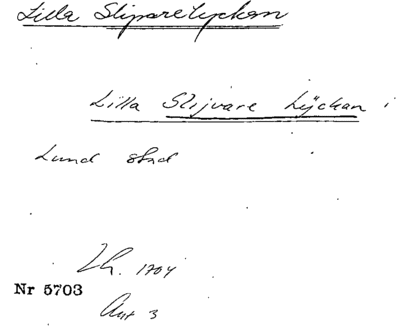 Lilla Sliparelyckan
Lilla Slijvare Lÿckan i
Lund stad
Lh. 1704
Nr 5703
Akt 3